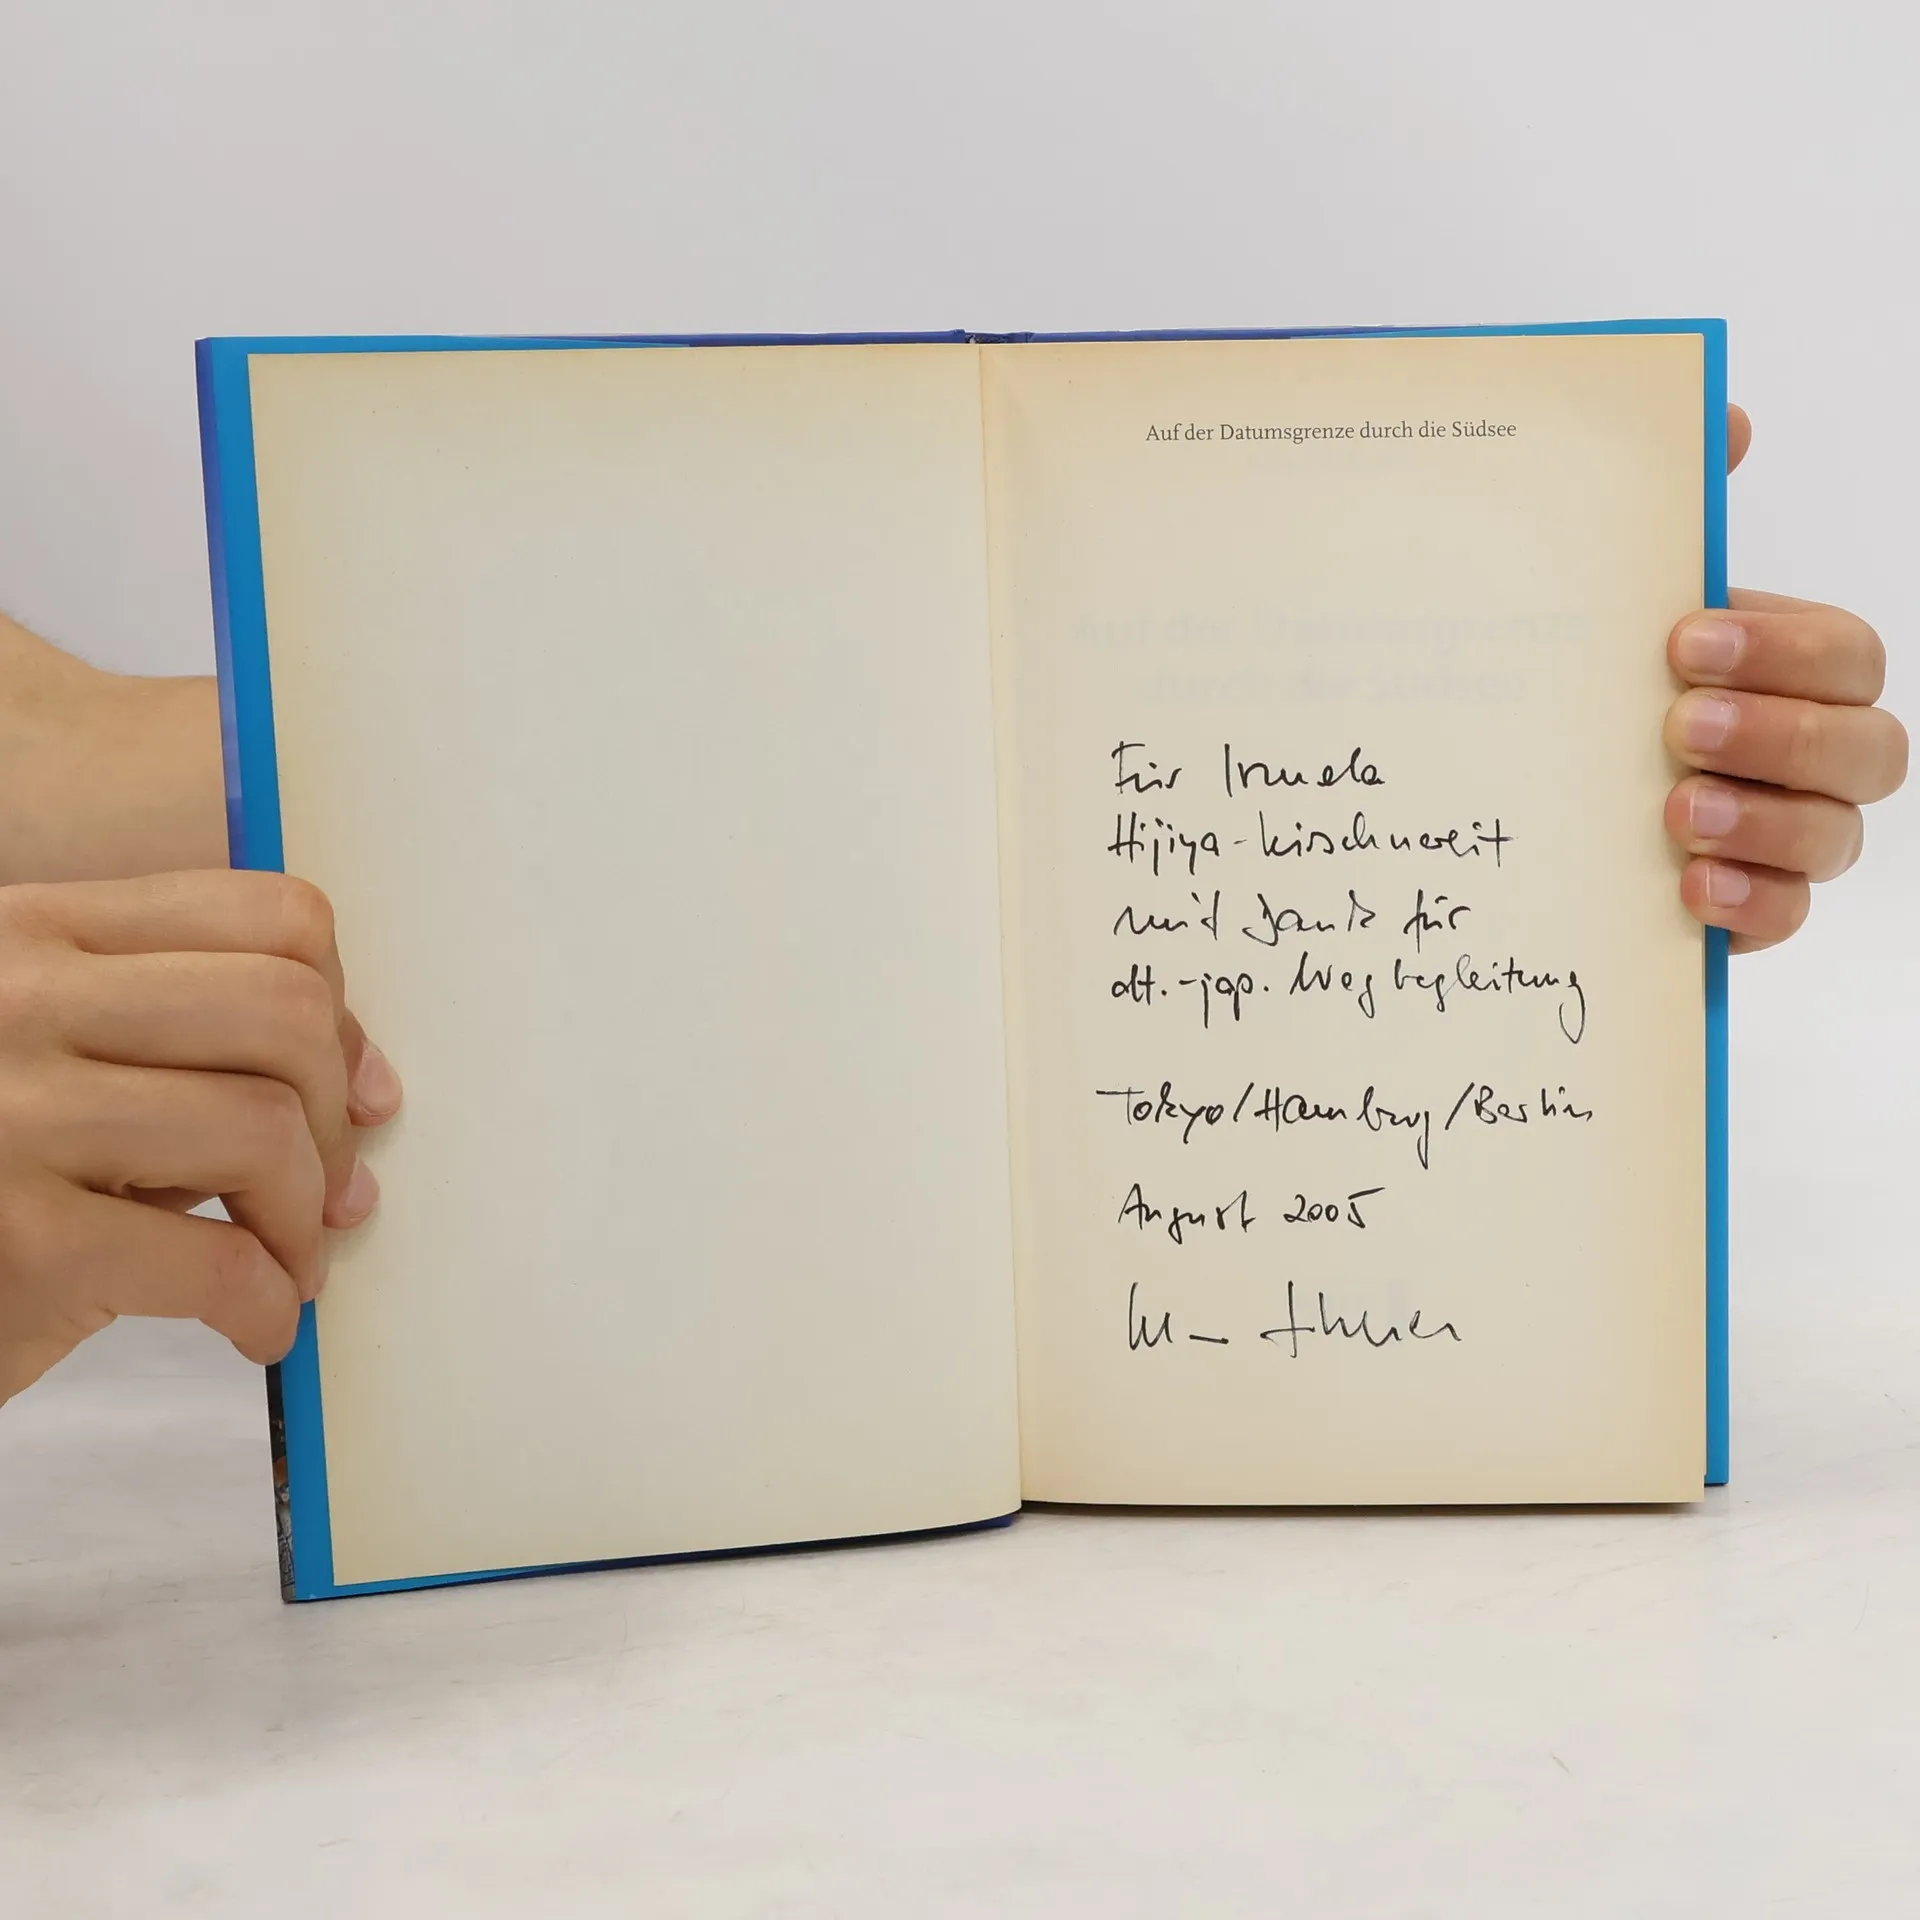 Auf der Datumsgrenze durch die Südsee
Für Irmela
Hijiya-Kirschnereit
mit Dank für
dt.-jap. Wegbegleitung
Tokyo/Hamburg/Berlin
August 2005